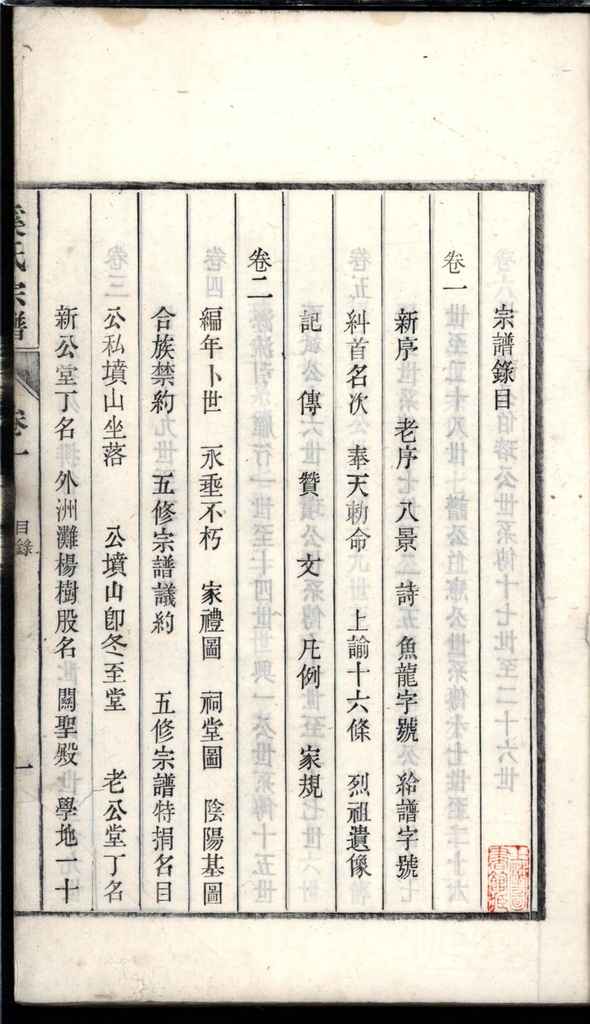 宗譜錄目
卷一
新序 老序 八景 詩 魚龍字號 給譜字號
糾首名次 奉天勅命 上諭十六條 烈祖遺像
記 傳 贊 文 凡例 家規
卷二
編年卜世 永垂不朽 家禮圖 祠堂圖 陰陽基圖
合族禁約 五修宗譜議約 五修宗譜特捐名目
公私墳山坐落 公墳山卽冬至堂 老公堂丁名
新公堂丁名 外洲灘楊樹股名 關聖殿 學地一十
氏宗譜 卷一 目錄 一